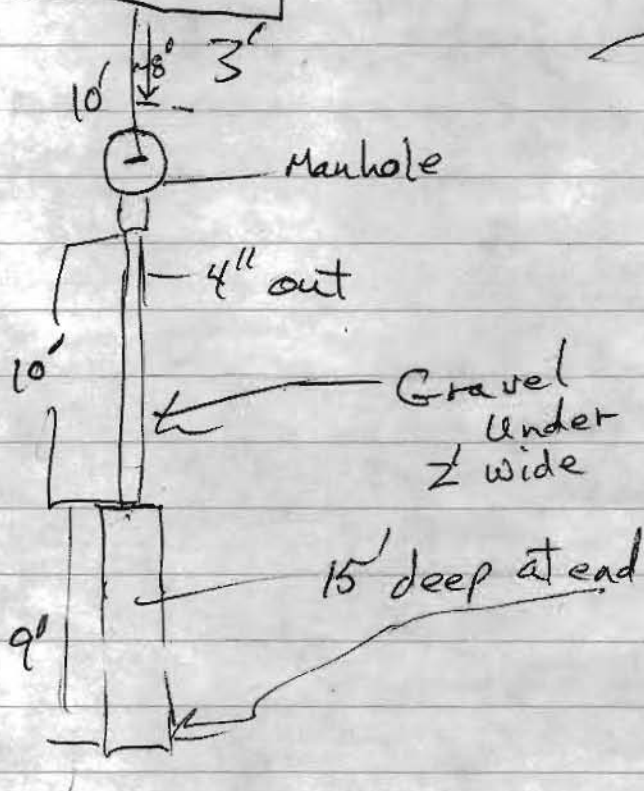 3'
8'
10'
Manhole
4" out
10'
Gravel
Under
2' wide
15' deep at end
9'